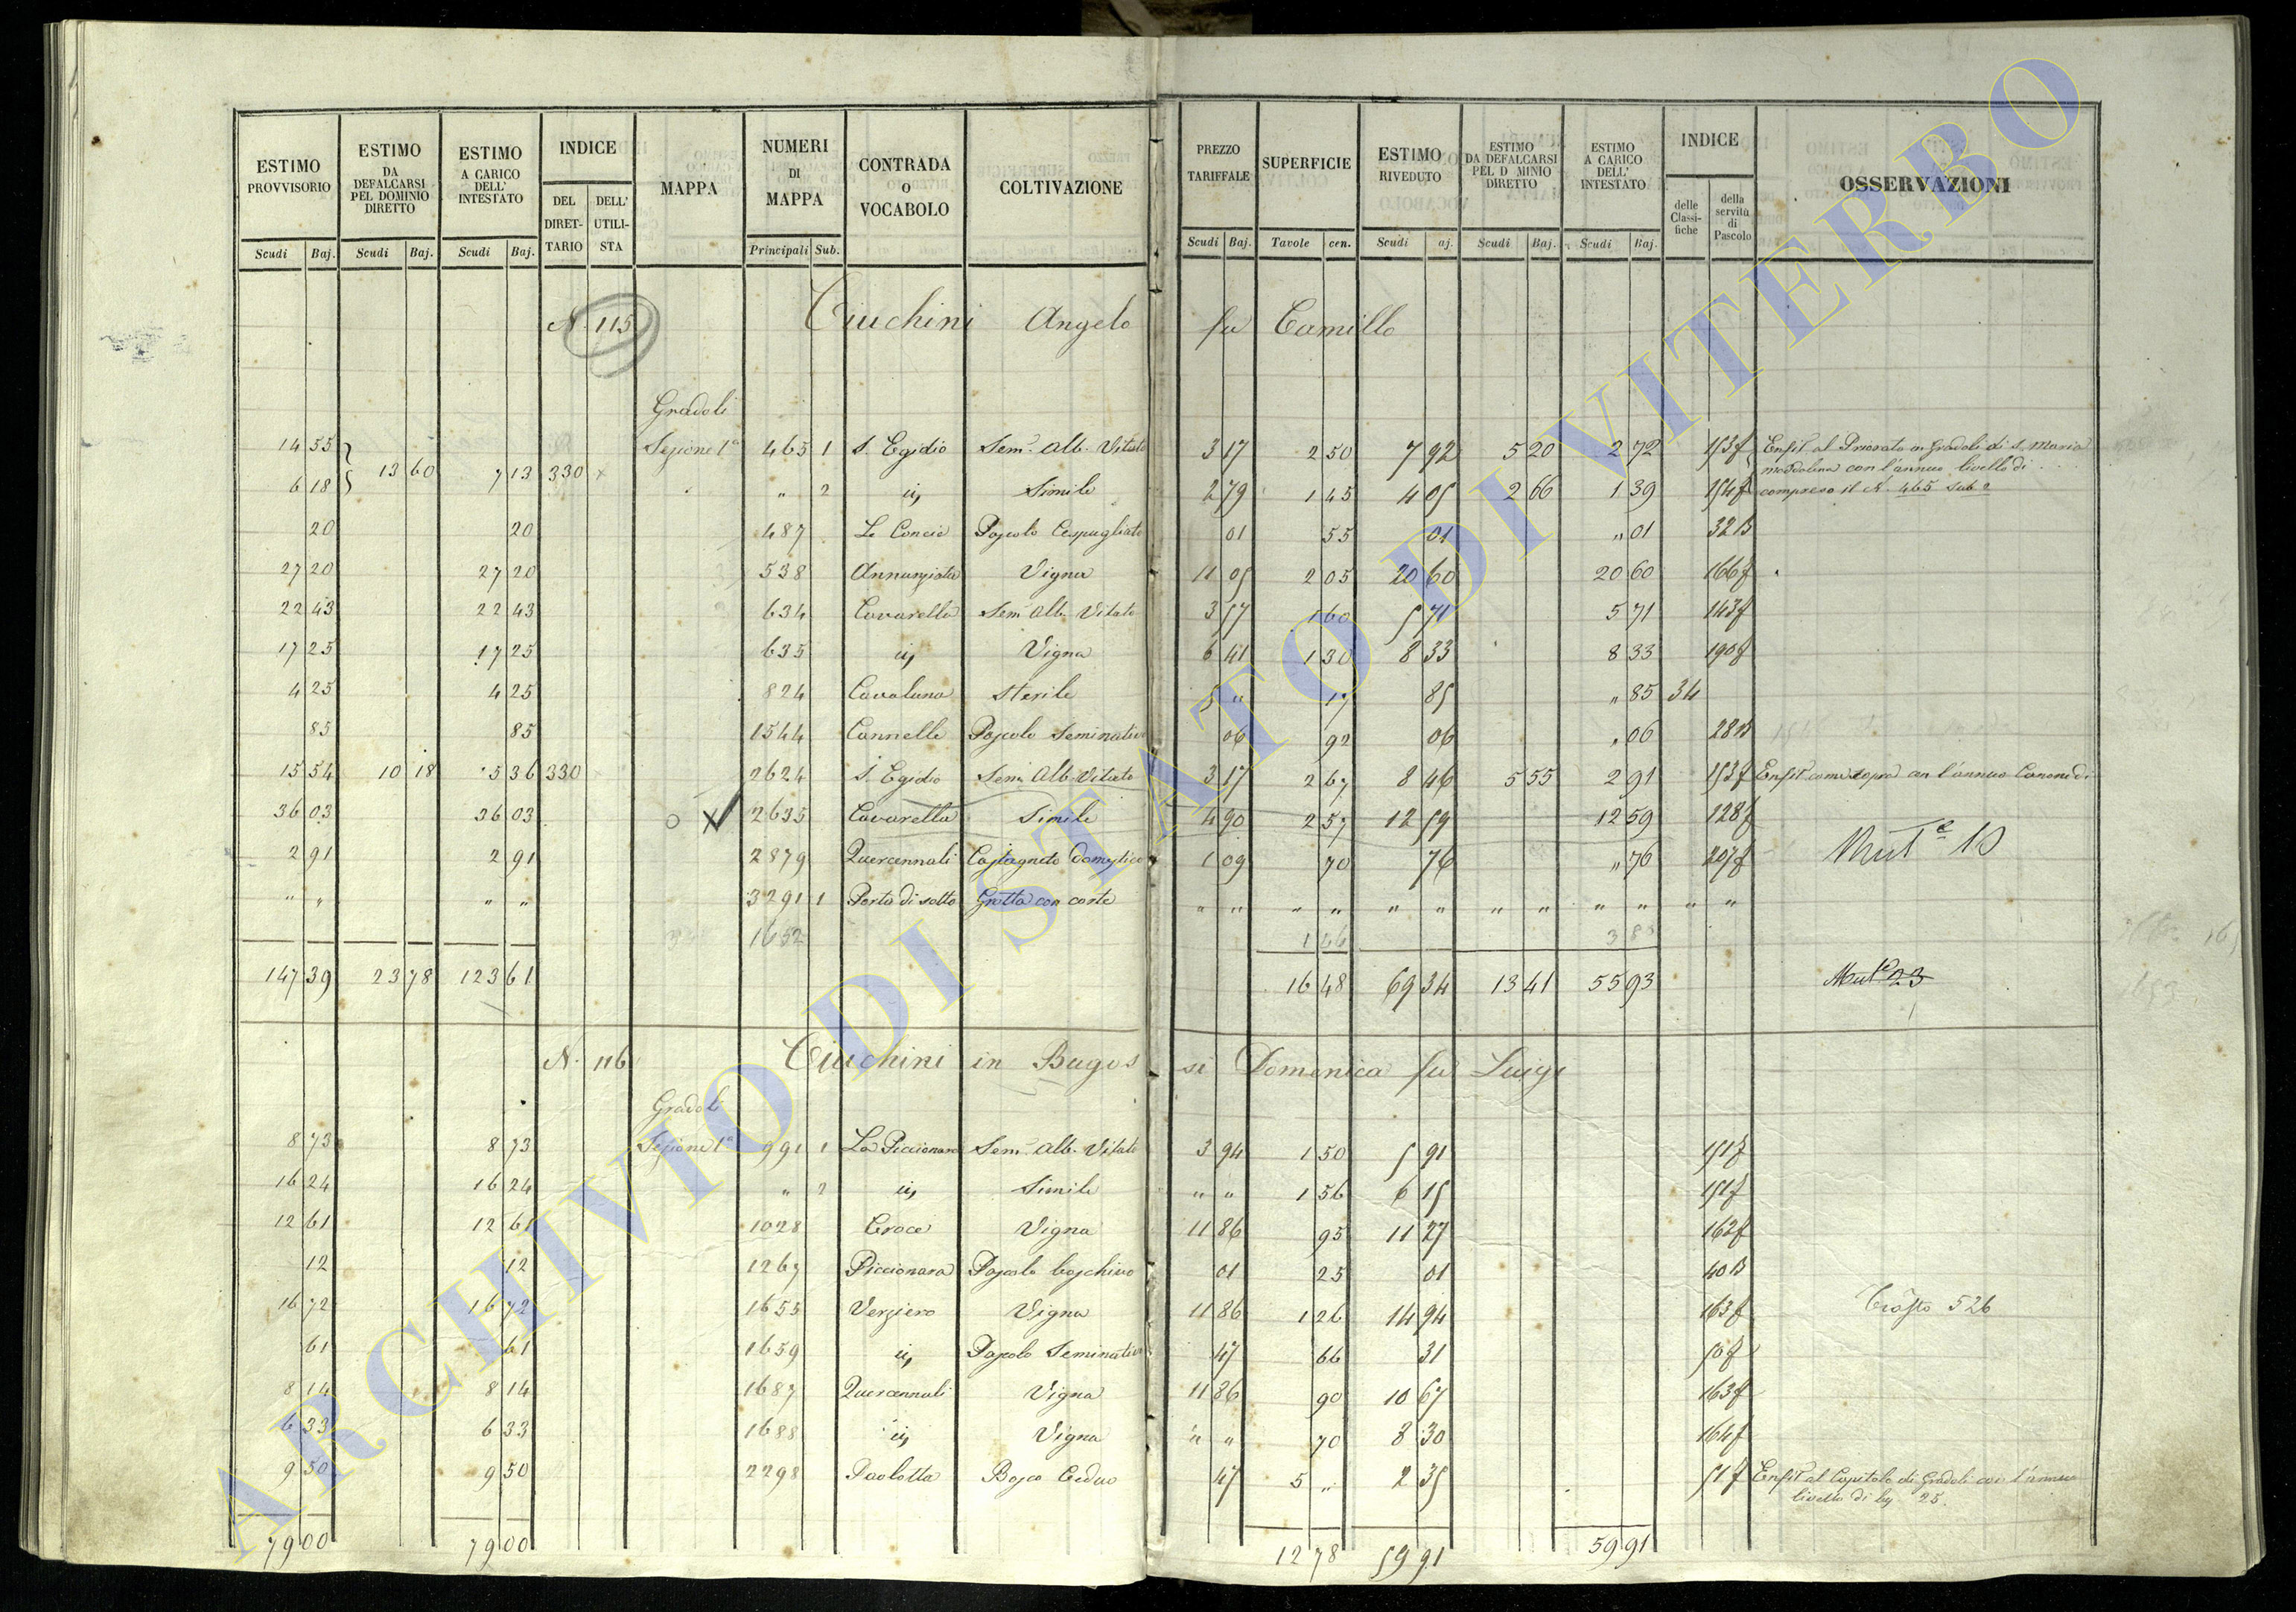 ESTIMO PROVVISORIO | ESTIMO DA DEFALCARSI PEL DOMINIO DIRETTO | ESTIMO A CARICO DELL' INTESTATO | INDICE | MAPPA | NUMERI DI MAPPA | CONTRADA O VOCABOLO | COLTIVAZIONE | PREZZO TARIFFALE | SUPERFICIE | ESTIMO RIVEDUTO | ESTIMO DA DEFALCARSI PEL D MINIO DIRETTO | ESTIMO A CARICO DELL' INTESTATO | INDICE | OSSERVAZIONI
DEL DIRET-TARIO | DELL' UTILI-STA | delle Classi-fiche | della servitù di Pascolo
Scudi | Baj. | Scudi | Baj. | Scudi | Baj. | Principali | Sub. | Scudi | Baj. | Tavole | cen. | Scudi | aj. | Scudi | Baj. | Scudi | Baj.
N. 115 Ciuchini Angelo fu Camillo
Gradoli
14 55 | 13 60 | 7 13 | 330 | Sezione 1a | 465 | 1 | S. Egidio | Sem. Alb. Vitato | 3 17 | 2 50 | 7 92 | 5 20 | 2 72 | 153f | Enfit. al Priorato in Gradoli di S. Maria
Maddalena con l'annuo livello di . . .
6 18 | " | 2 | id, | Simile | 2 79 | 1 45 | 4 05 | 2 66 | 1 39 | 154f | compreso il N. 465 sub 2
20 | 20 | 487 | Le Concie | Pascolo Cespugliato | 01 | 55 | 01 | " 01 | 32B
27 20 | 27 20 | 538 | Annunziata | Vigna | 11 05 | 2 05 | 20 60 | 20 60 | 166f
22 43 | 22 43 | 634 | Cavarella | Sem. Alb. Vitato | 3 57 | 1 60 | 5 71 | 5 71 | 143f
17 25 | 17 25 | 635 | id, | Vigna | 6 41 | 1 30 | 8 33 | 8 33 | 190f
4 25 | 4 25 | 824 | Cavaluna | Sterile | 5 " | 17 | 85 | " 85 | 34
85 | 85 | 1544 | Cannelle | Pascolo Seminativo | 06 | 92 | 06 | " 06 | 28B
15 54 | 10 18 | 5 36 | 330 | 2624 | S. Egidio | Sem. Alb. Vitato | 3 17 | 2 67 | 8 46 | 5 55 | 2 91 | 153f | Enfit. come sopra con l'annuo Canone di
36 03 | 36 03 | o X | 2635 | Cavarella | Simile | 4 90 | 2 57 | 12 59 | 12 59 | 128f
2 91 | 2 91 | 2879 | Quercennali | Castagneto domestico | 1 09 | 70 | 76 | " 76 | 207f | Mut e 10
" " | " " | 3291 | 1 | Porta di sotto | Grotta con corte | " " | " " | " " | " " | " " | " "
1652 | 1 46 | 3 8
147 39 | 23 78 | 123 61 | 16 48 | 69 34 | 13 41 | 55 93 | Mut e 23
N. 116 Ciuchini in Bagossi Domenica fu Luigi
Gradoli
8 73 | 8 73 | Sezione 1a | 991 | 1 | La Piccionara | Sem. Alb. Vitato | 3 94 | 1 50 | 5 91 | 151f
16 24 | 16 24 | " | 2 | id, | Simile | " " | 1 56 | 6 15 | 151f
12 61 | 12 61 | 1028 | Croce | Vigna | 11 86 | 95 | 11 27 | 162f
12 | 12 | 1267 | Piccionara | Pascolo boschivo | 01 | 25 | 01 | 40B
16 72 | 16 72 | 1655 | Verziero | Vigna | 11 86 | 1 26 | 14 94 | 163f | 526
61 | 61 | 1659 | id, | Pascolo Seminativo | 47 | 66 | 31 | 50f
8 14 | 8 14 | 1687 | Quercennali | Vigna | 11 86 | 90 | 10 67 | 163f
6 33 | 6 33 | 1688 | id, | Vigna | " " | 70 | 8 30 | 164f
9 50 | 9 50 | 2298 | Paoletta | Bosco Ceduo | 47 | 5 " | 2 35 | 51f | Enfit. al Capitolo di Gradoli con l'annuo
livello di bj. 25.
79 00 | 79 00 | 12 78 | 59 91 | 59 91
ARCHIVIO DI STATO DI VITERBO